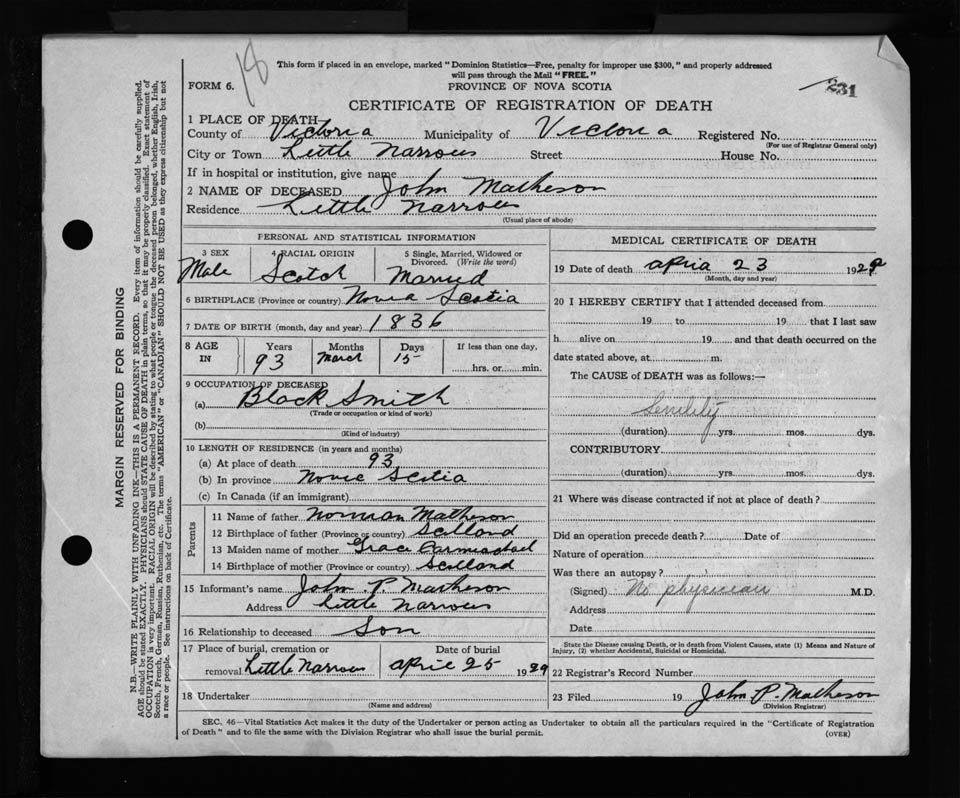 18
This form if placed in an envelope, marked "Dominion Statistics—Free, penalty for improper use $300," and properly addressed
will pass through the Mail "FREE."
FORM 6.
PROVINCE OF NOVA SCOTIA
231
CERTIFICATE OF REGISTRATION OF DEATH
1 PLACE OF DEATH—
County of Victoria Municipality of Victoria Registered No.
(For use of Registrar General only)
City or Town Little Narrows Street House No.
If in hospital or institution, give name
2 NAME OF DECEASED John Matheson
Residence Little Narrows
(Usual place of abode)
PERSONAL AND STATISTICAL INFORMATION
3 SEX 4 RACIAL ORIGIN 5 Single, Married, Widowed or Divorced. (Write the word)
Male Scotch Married
6 BIRTHPLACE (Province or country) Nova Scotia
7 DATE OF BIRTH (month, day and year) 1836
8 AGE IN Years Months Days If less than one day,
93 March 15 hrs. or min.
9 OCCUPATION OF DECEASED
(a) Black Smith
(Trade or occupation or kind of work)
(b)
(Kind of industry)
10 LENGTH OF RESIDENCE (in years and months)
(a) At place of death 93
(b) In province Nova Scotia
(c) In Canada (if an immigrant)
Parents
11 Name of father Norman Matheson
12 Birthplace of father (Province or country) Scotland
13 Maiden name of mother Grace Carmichael
14 Birthplace of mother (Province or country) Scotland
15 Informant's name John P. Matheson
Address Little Narrows
16 Relationship to deceased Son
17 Place of burial, cremation or removal Date of burial
Little Narrows April 25 1929
18 Undertaker
(Name and address)
MEDICAL CERTIFICATE OF DEATH
19 Date of death April 23 1929
(Month, day and year)
20 I HEREBY CERTIFY that I attended deceased from
19 to 19 that I last saw
h alive on 19 and that death occurred on the
date stated above, at m.
The CAUSE of DEATH was as follows:—
Senility
(duration) yrs. mos. dys.
CONTRIBUTORY
(duration) yrs. mos. dys.
21 Where was disease contracted if not at place of death?
Did an operation precede death? Date of
Nature of operation
Was there an autopsy?
(Signed) No physician M.D.
Address
Date
State the Disease causing Death, or in death from Violent Causes, state (1) Means and Nature of
Injury, (2) whether Accidental, Suicidal or Homicidal.
22 Registrar's Record Number
23 Filed 19 John P. Matheson
(Division Registrar)
SEC. 46—Vital Statistics Act makes it the duty of the Undertaker or person acting as Undertaker to obtain all the particulars required in the "Certificate of Registration
of Death" and to file the same with the Division Registrar who shall issue the burial permit.
(OVER)
MARGIN RESERVED FOR BINDING
N.B.—WRITE PLAINLY WITH UNFADING INK—THIS IS A PERMANENT RECORD. Every item of information should be carefully supplied.
AGE should be stated EXACTLY. PHYSICIANS should STATE CAUSE OF DEATH in plain terms, so that it may be properly classified. Exact statement of
OCCUPATION is very important. RACIAL ORIGIN will be described by stating to what people or tongue the deceased person belonged, whether English, Irish,
Scotch, French, German, Russian, Ruthenian, etc. The terms "AMERICAN" or "CANADIAN" SHOULD NOT BE USED as they express citizenship but not
a race or people. See instructions on back of Certificate.